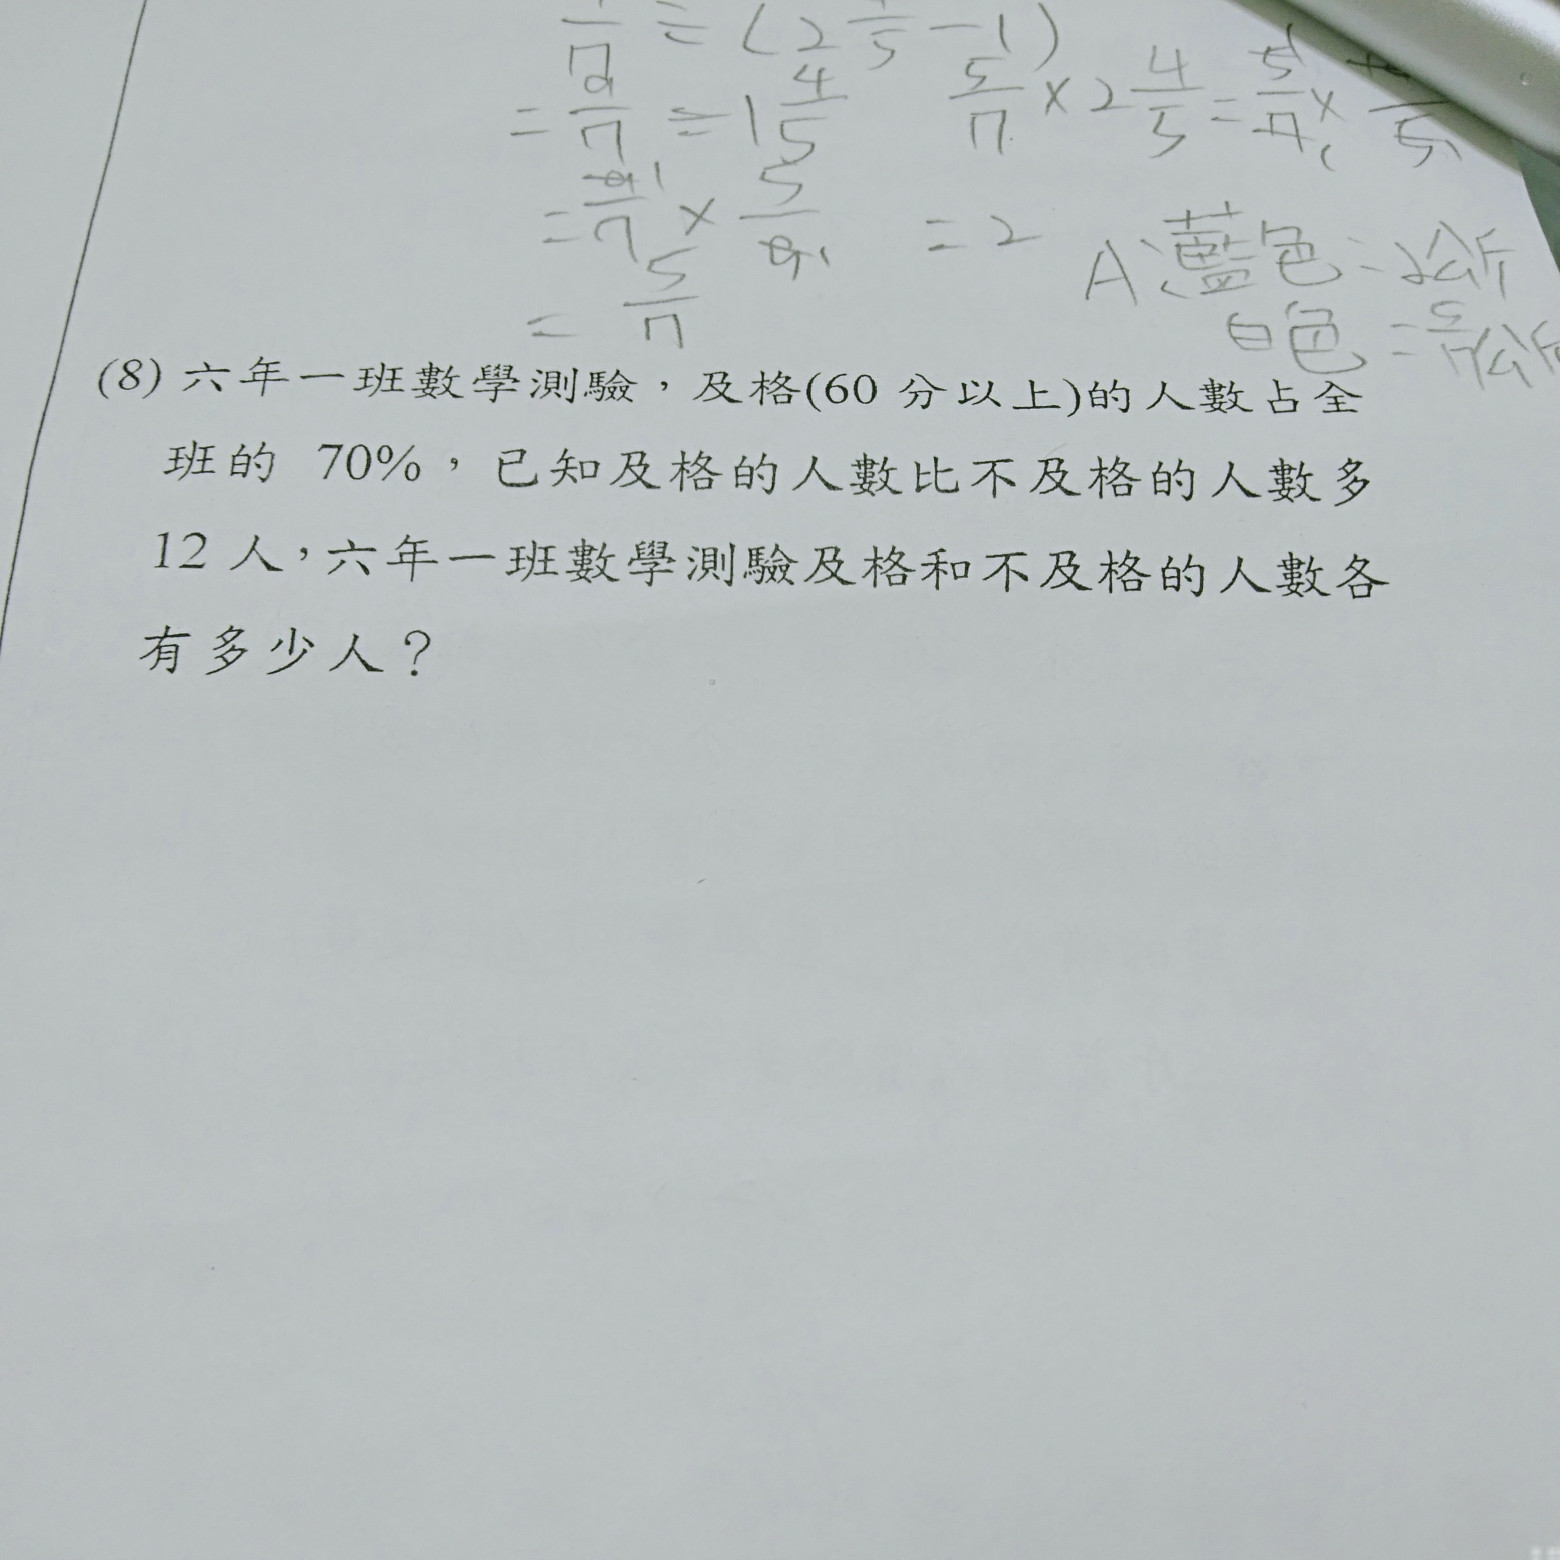 ÷(2 -1)
= 9/7 ÷ 1 4/5  5/7 × 2 4/5 = 5/7 ×
= 9/7 × 5/9  = 2  A:藍色=2公斤
= 5/7  白色=5/7公斤
(8) 六年一班數學測驗，及格(60 分以上)的人數占全
班的 70%，已知及格的人數比不及格的人數多
12 人，六年一班數學測驗及格和不及格的人數各
有多少人？